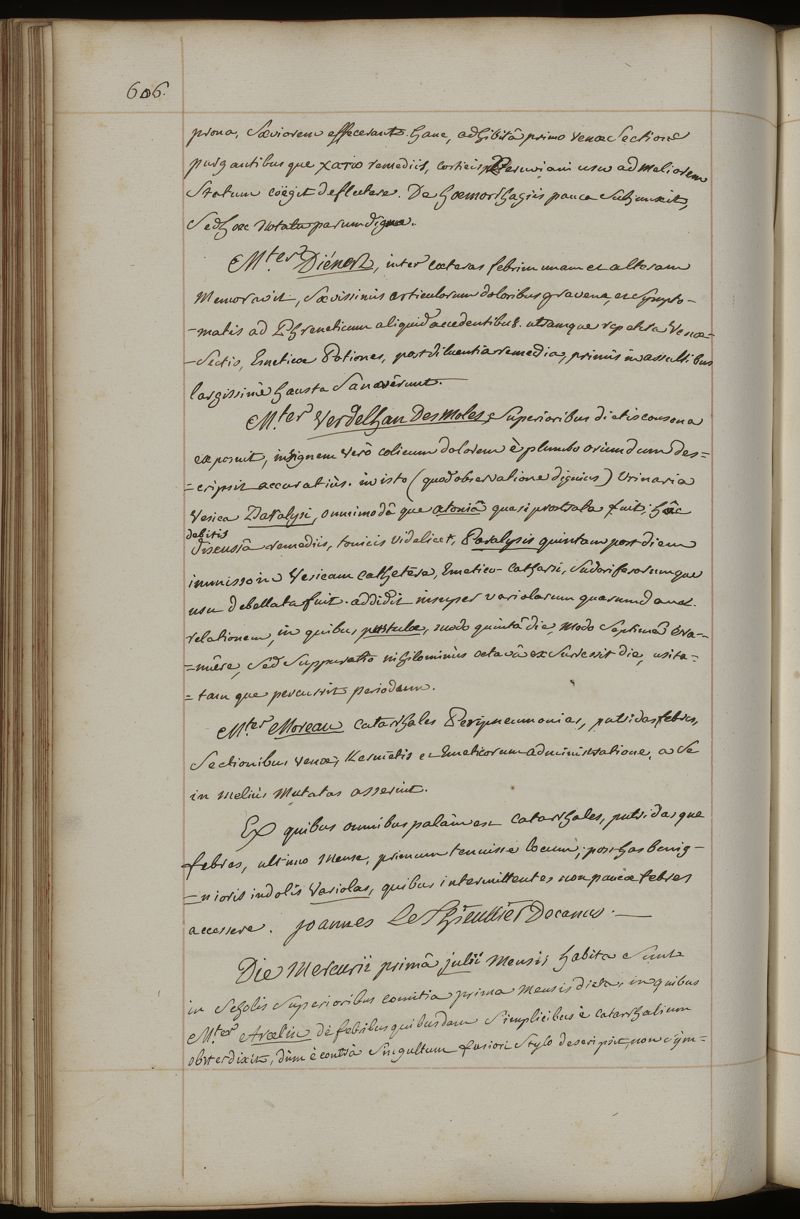 606.
prona, Sæviorem effecerant. hanc, adhibitâ primo venæ Sectione
purgantibusque ratio remediis, corticis Peruviani usu ad meliorem
Statum coëgit deflectere. De hæmorrhagiis pauca Subjunxit,
Sed hæc notatu parum digna.
M.ter Diénert, inter cæteras febrim unam et alteram
Memoravit, Sævissimis articulorum doloribus gravem, et Sympto-
-matis ad Phreneticum aliquid accedentibus. utramque repetita Venæ-
-Sectio, Emeticæ Potiones, post diluentia remedia, primis in assultibus
largissimè hausta Sanavêrunt.
M.ter Verdelhan Des Moles, Superioribus dictis consona
exposuit, insignem verò colicum dolorem è plumbo oriundum des=
=cripsit accuratiùs. in isto (quod observatione dignius) Urinaria
Vesica Paralysi, omnimodâque atoniâ quasi prostrata fuit. hâc
debitis
discussâ remediis, tonicis videlicet, Paralysis quintam post diem
immisso in Vesicam cathetere, Emetico-Catharsi, Sudoriferorumque
usu debellata fuit. addidit insuper variolarum quarumdam
relationem, in quibus pustulæ, modo quintâ die, modo Septimâ eva-
=nuêre, Sed Suppuratio nihilominùs octavâ exsurrexit die, usita=
=tamque percurrit periodum.
M.ter Moreau catarrhales Peripneumonias, putridas febres,
Sectionibus venæ, Kermetis et Emeticorum administratione, a Se
in meliùs Mutatas asseruit.
Ex quibus omnibus palàm est catarrhales, putridasque
febres, ultimo Mense, primum tenuisse locum; post has benig-
=nioris indolis Variolas, quibus intermittentes non paucæ febres
accessere. Joannes Le Thieullier Decanus.
Die Mercurii primâ julii Mensis habita Sunt
in Scholis Superioribus comitia prima Mensis dicta, in quibus
M.ter Avelin de febribus quibusdam Simplicibus è catarrhalium
obiter dixit, dùm è contrà Singultum fusiori Stylo descripsit, non Sym=